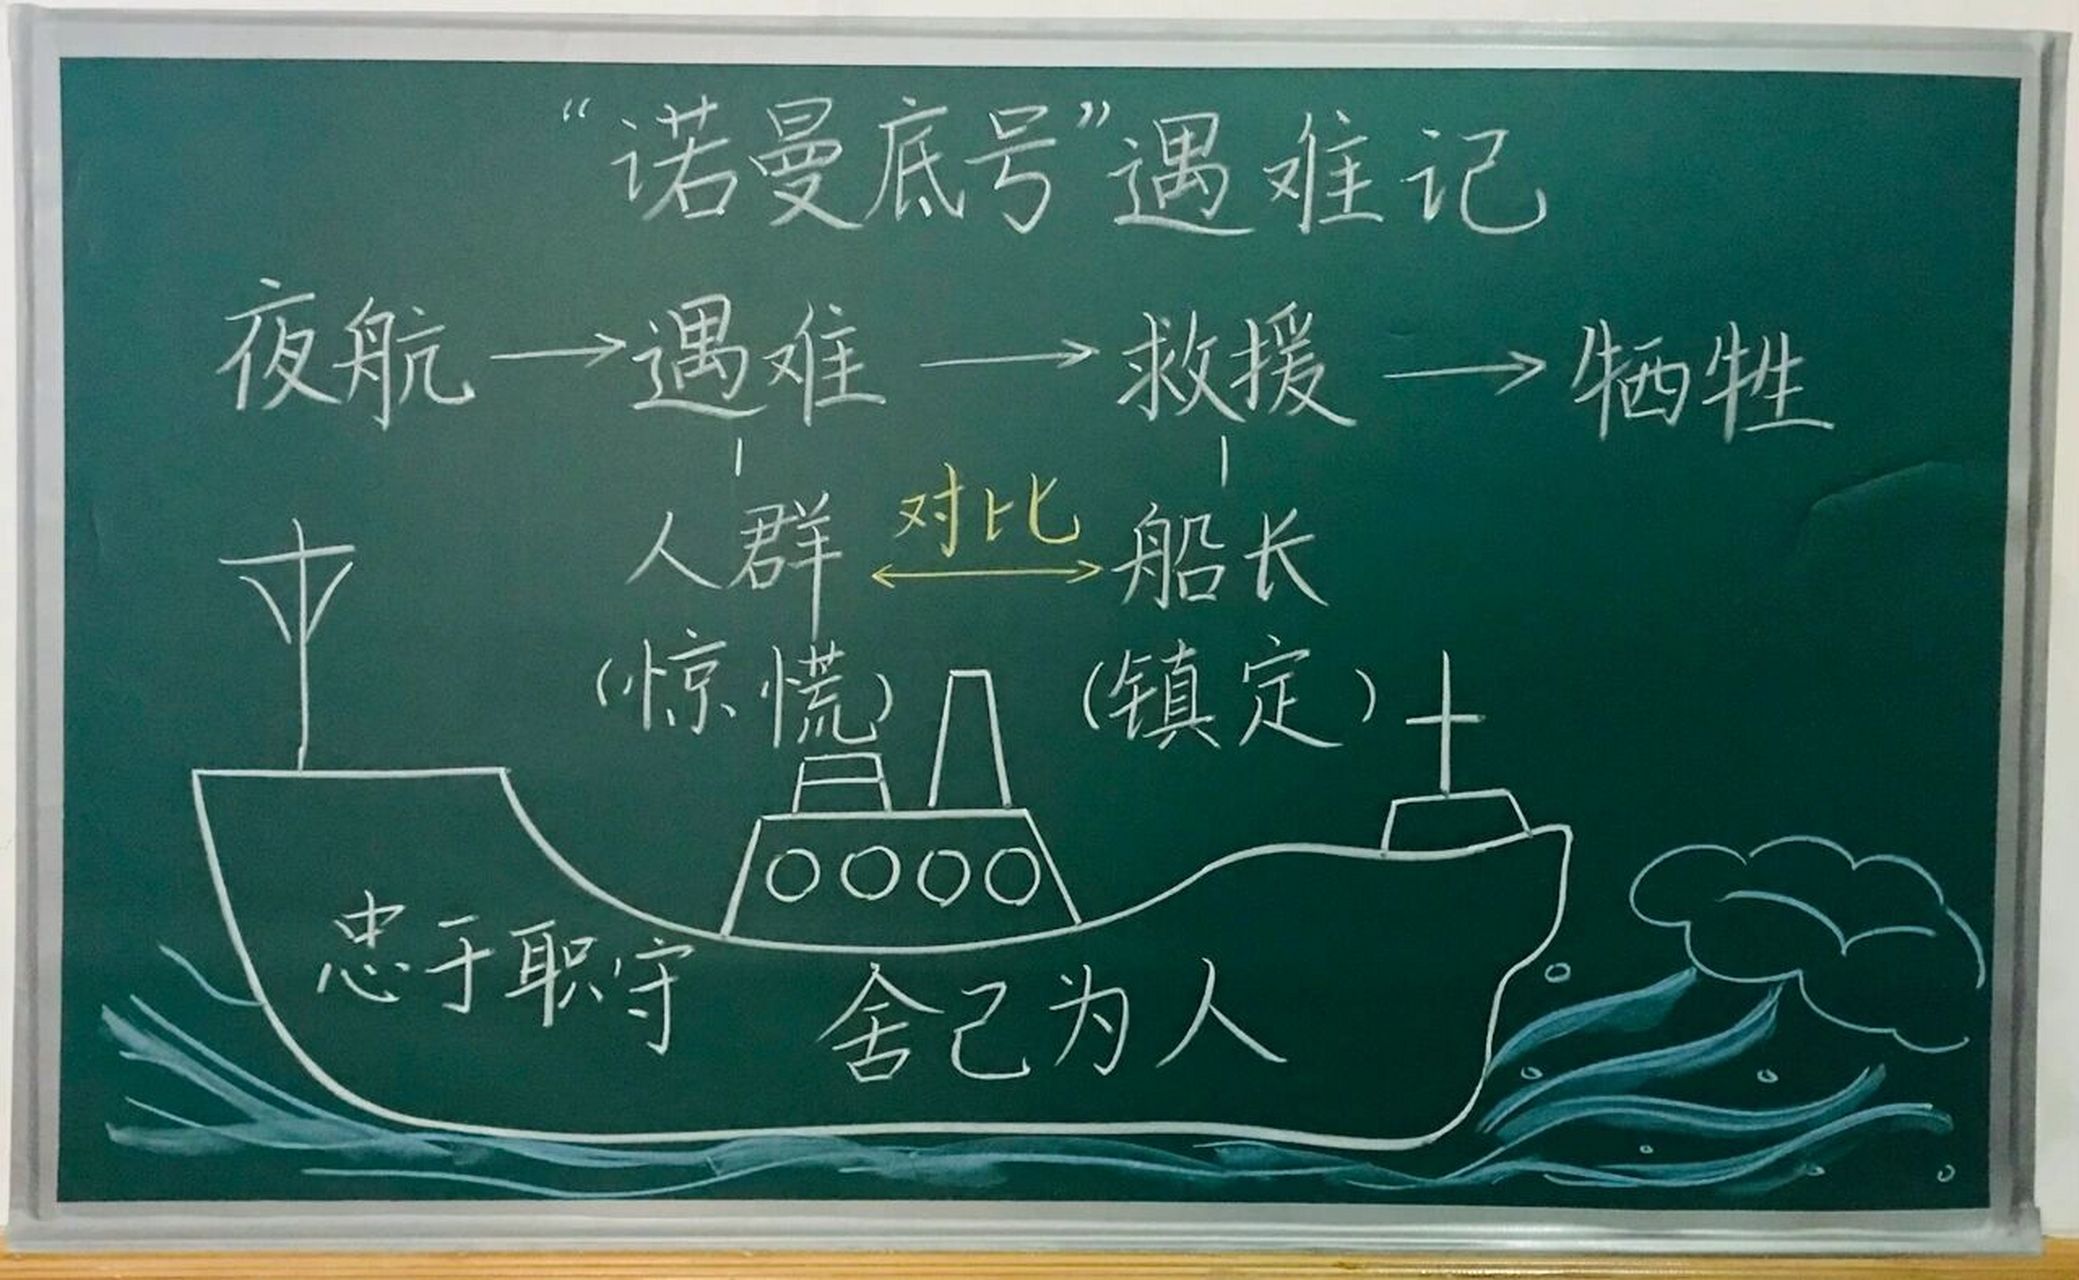 “诺曼底号”遇难记
夜航→遇难→救援→牺牲
人群 对比 船长
(惊慌) (镇定)
忠于职守
舍己为人